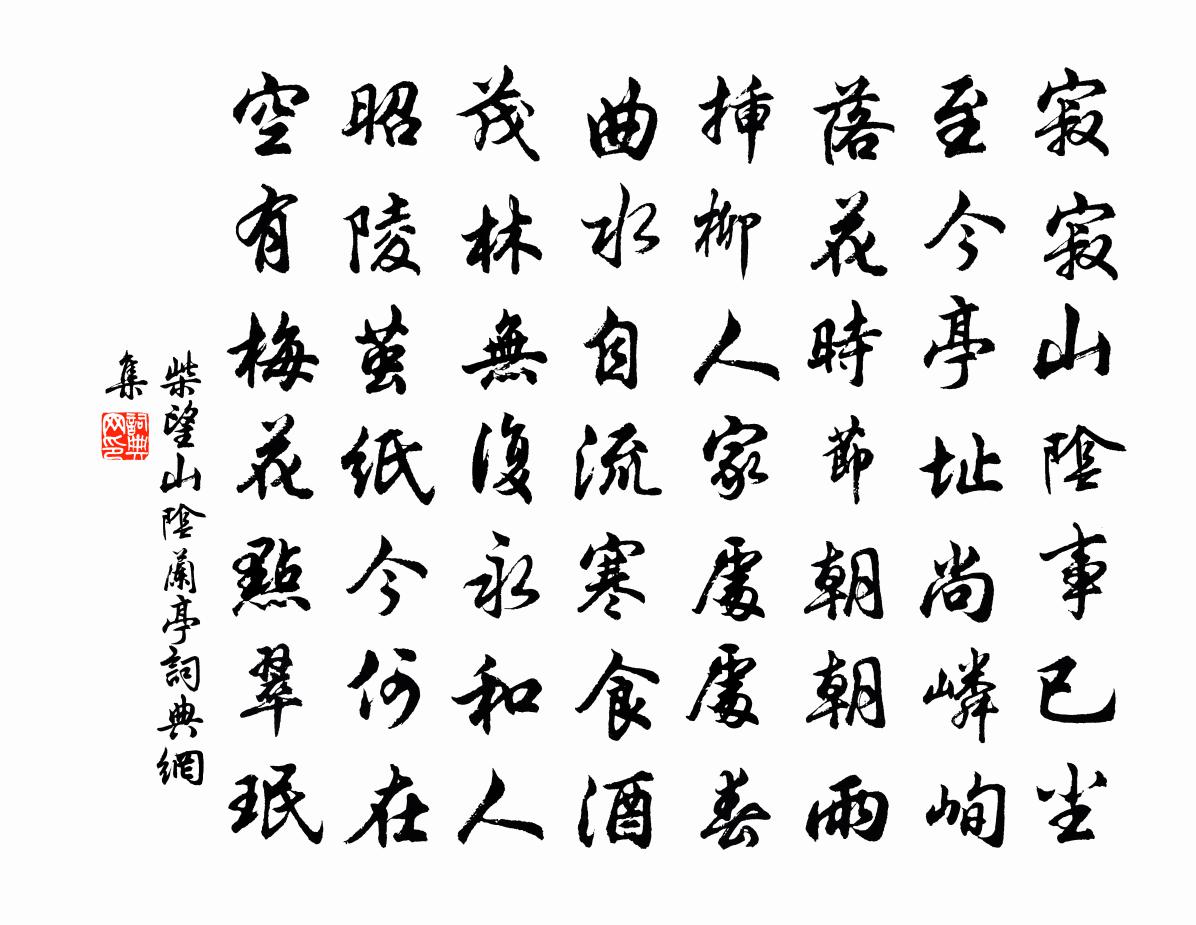 寂寂山陰事已尘
至今亭址尚嶙峋
落花時節朝朝雨
挿柳人家處處春
曲水自流寒食酒
茂林無復永和人
昭陵茧紙今何在
空有梅花點翠珉
柴望山陰蘭亭詞典網
集
詞典网印